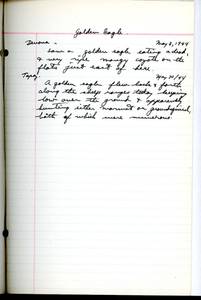 Golden Eagle
May 8, 1944
Saw a golden eagle eating a dead,
& very ripe mangy coyote on the
flats just east of here.
May 20/44
A golden eagle flew back & forth
along the sheep ranges today keeping
low over the ground & apparently
hunting either marmot or groundsquirrel,
both of which were numerous